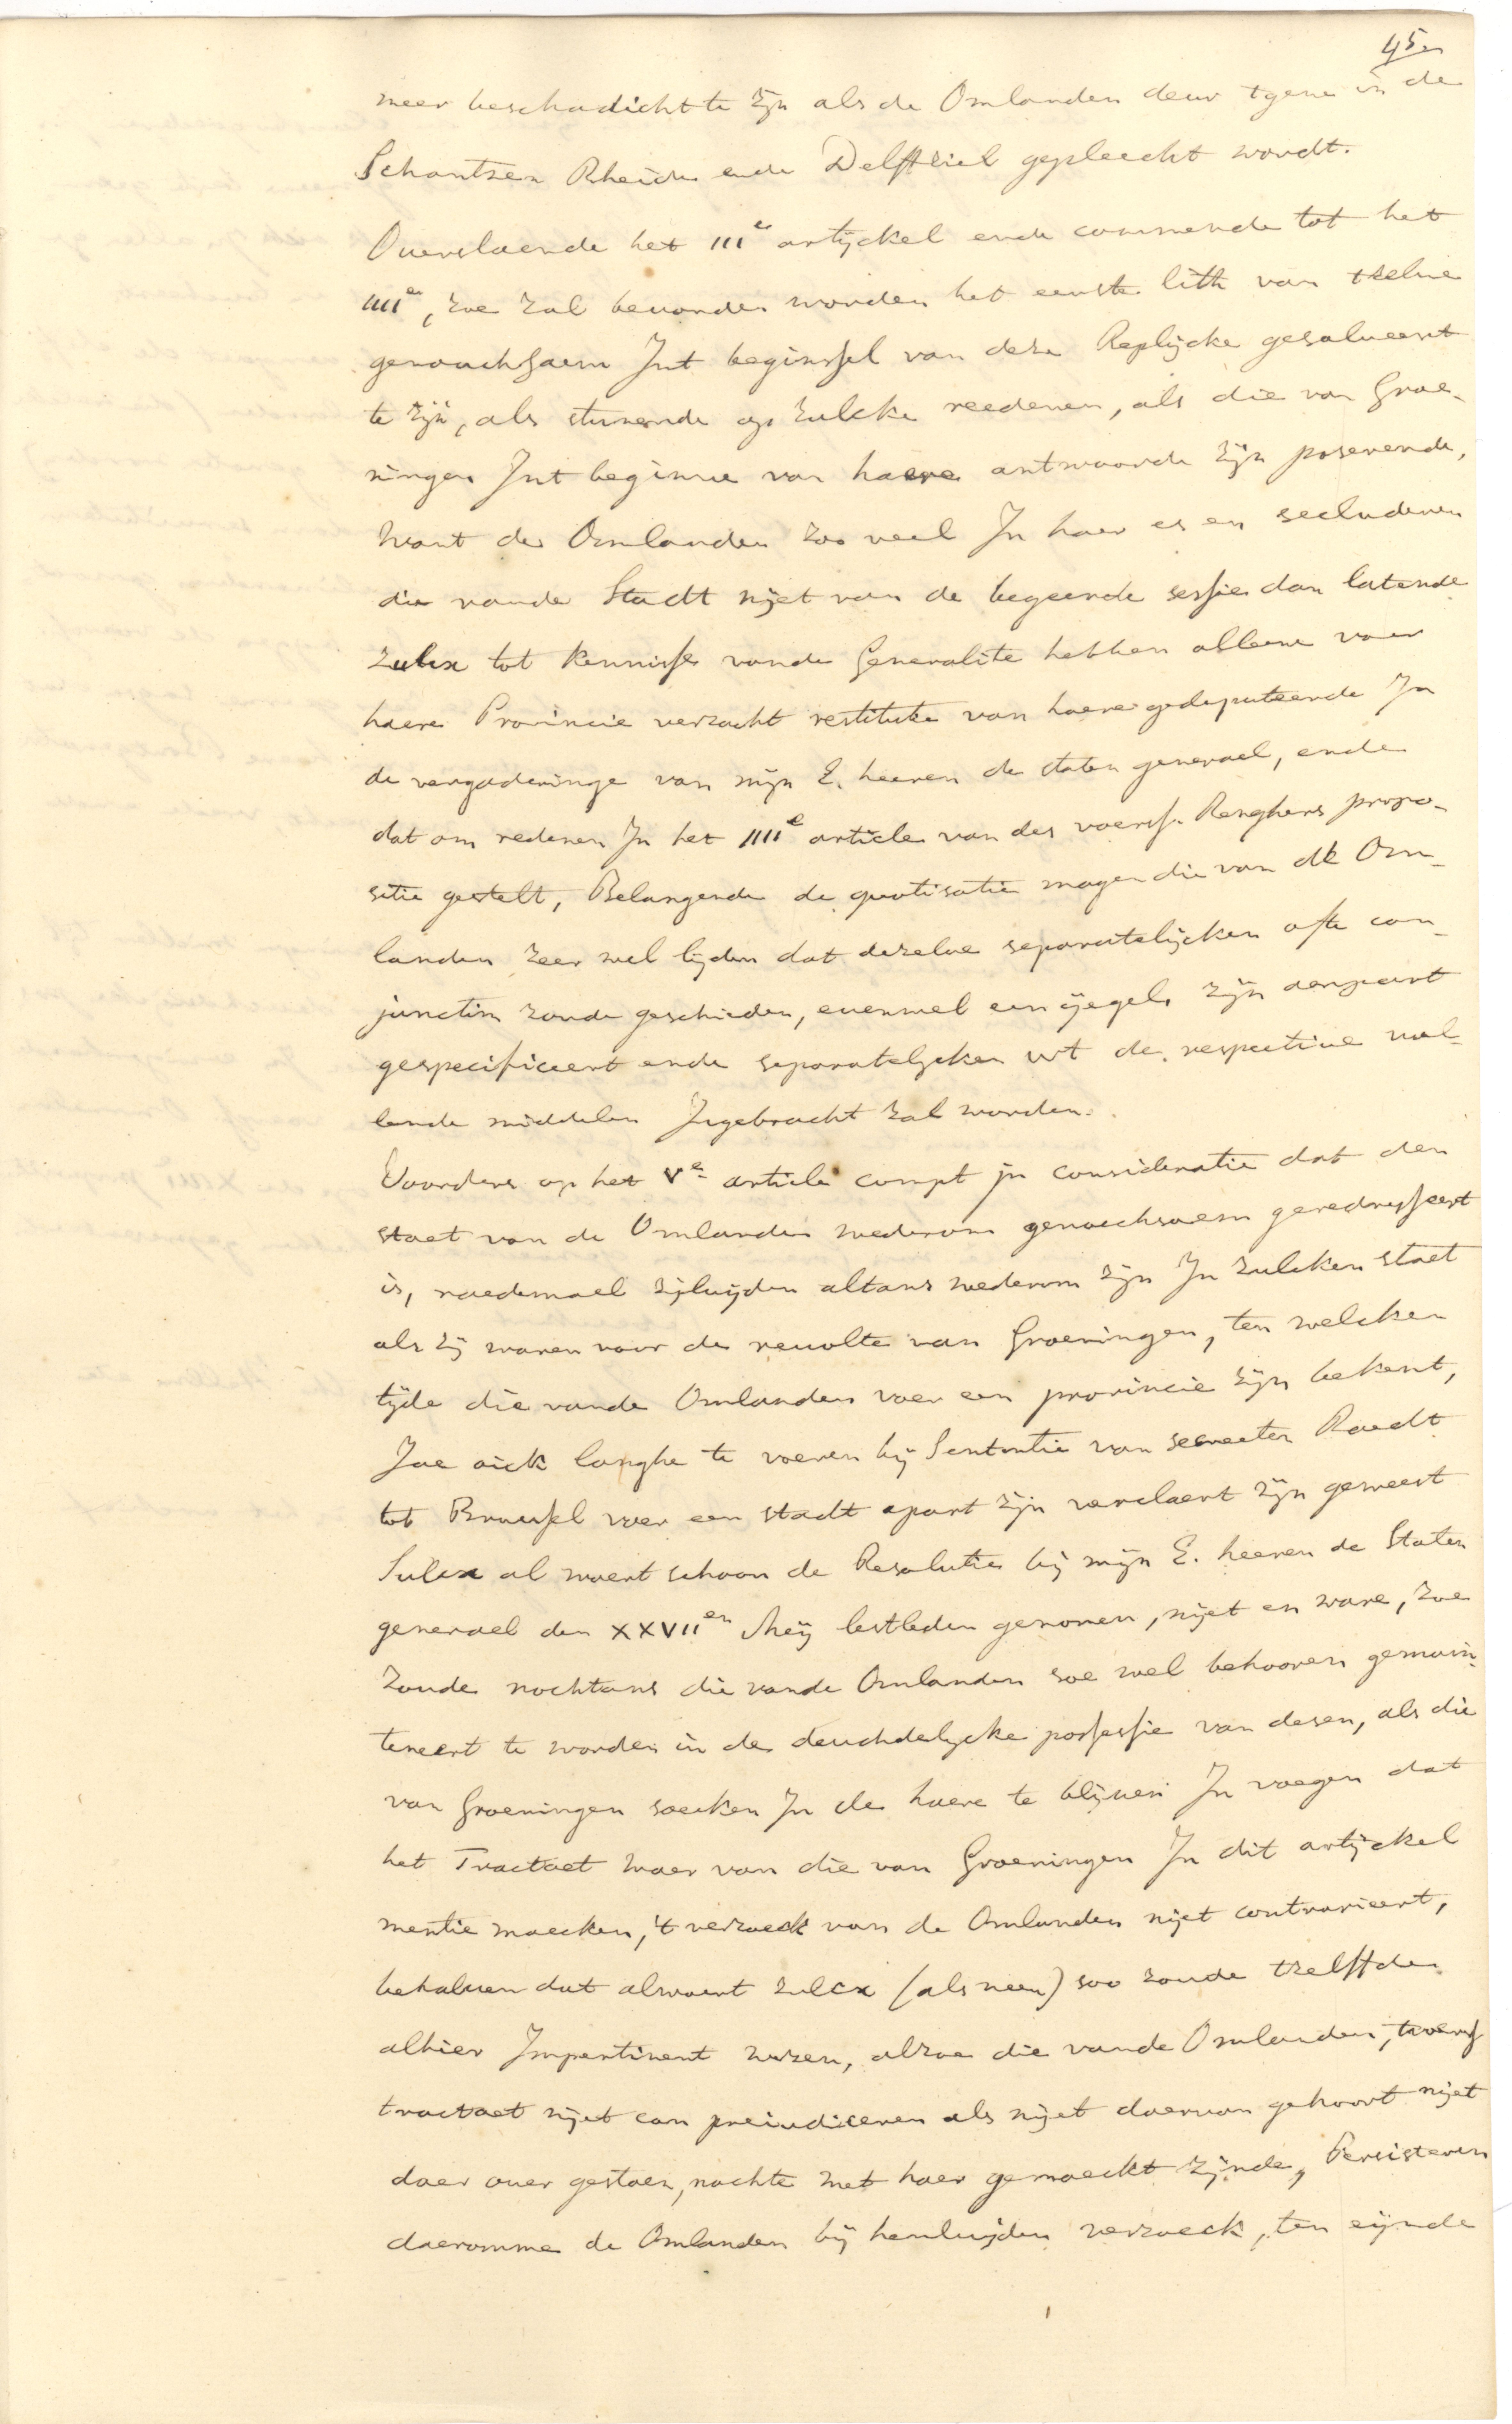 45
meer beschadicht te zijn als de Omlanden deur tgene in de
Schantsen Rheide ende Delffziel gepleecht wordt.
Ouerslaende het IIIe artyckel ende commende tot het
IIIIe, zoe zal beuonden worden het eerste lith van tselue
genouchsaem Int beginssel van deze Replycke gesolueert
te zijn, als stuenende op zulcke reedenen, als die van Groe-
ningen Int beginne van haere antwoorde zijn poserende,
want de Omlanden zoo veel In haer es en secluderen
die vande Stadt nyet van de begeerde sessie dan latende
zulcx tot kennisse vande Generalite hebben alleene voer
haere Provincie verzocht restitutie van haere gedeputeerde In
de vergaderinge van mijn E. heeren de staten generael, ende
dat om redenen In het IIIIe article van des voers. Renghers propo-
sitie gestelt, Belangende de quotisatie mogen die van de Om-
landen zeer wel lyden dat dezelue separatelycken ofte con-
junctim zoude geschieden, euenwel een yegel. zijn aenpart
gespecificeert ende separatelycken wt de respectiue uol-
lende middelen Ingebracht zal worden.
Voorders op het Ve article compt in consideratie dat den
staet van de Omlanden wederom genoechsaem geredresseert
is, naedemael zijluyden altans wederom zijn In zulcken staet
als zij waren voor de reuolte van Groeningen, ten welcken
tyde die vande Omlanden voer een provincie zijn bekent,
Jae oick langhe te voeren bij Sententie van secreeten Raedt
tot Bruessel voer een stadt apart zijn verclaert zijn geweest
Sulcx al waert schoon de Resolutie bij mijn E. heeren de Staten
generael den XXVIIen Meij lestleden genomen, nyet en ware, zoe
zoude nochtans die vande Omlanden soe wel behooren gemain-
teneert te worden in de deuchdelycke possessie van desen, als die
van Groeningen soecken In de haere te blyuen In voegen dat
het Tractaet waer van die van Groeningen In dit artyckel
mentie maecken, 't verzoeck van de Omlanden nyet contrarieert,
behaluen dat alwaert zulcx (als neen) soo zoude tzelffde
alhier Impertinent wezen, alzoe die vande Omlanden, tvoers
tractaet nyet can preiudiceren als nyet daervan gehoort nyet
daer ouer gestaen, nochte met haer gemaeckt zijnde, Persisteren
daeromme de Omlanden bij henluyden verzoeck, ten eijnde